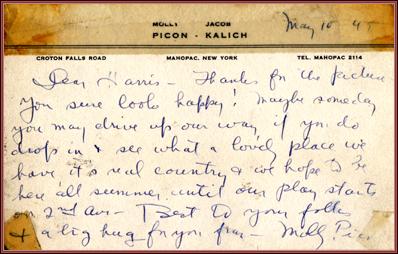 MOLLY JACOB
PICON - KALICH
May 10 45
CROTON FALLS ROAD MAHOPAC, NEW YORK TEL. MAHOPAC 2114
Dear Harris - Thanks for the picture
You sure look happy! Maybe someday
you may drive up our way, if you do
drop in & see what a lovely place we
have, it's real country & we hope to be
here all summer until our play starts
on 2nd Ave - Best to your folks
& a big hug for you from - Molly Picon